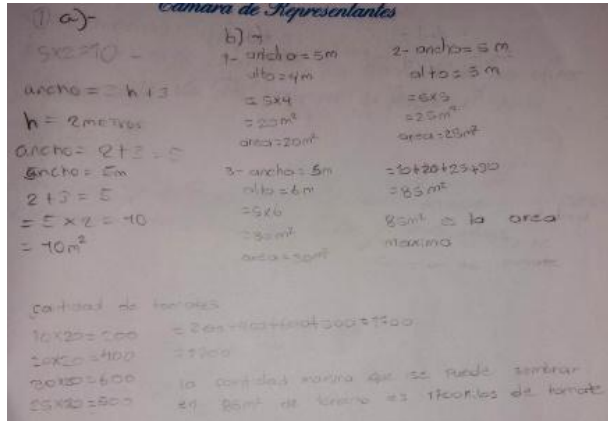 Cámara de Representantes
① a)-
5x2=10 -
ancho = h+3
h = 2metros
ancho= 2+3=5
ancho= 5m
2+3=5
= 5x2=10
= 10m²
b)-
1- ancho=5m
alto=4m
= 5x4
= 20m²
area=20m²
2- ancho=5m
alto=5m
=5x5
=25m²
area=25m²
3- ancho=5m
alto=6m
=5x6
=30m²
area=30m²
=10+20+25+30
=85m²
85m² es la area
maxima
cantidad de tomates
10x20=200
20x20=400
30x20=600
25x20=500
=200+400+600+500=1700
=1700
la cantidad maxima que se puede sembrar
en 85m² de terreno es 1700 kilos de tomate